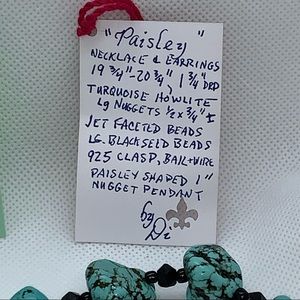 "Paisley"
NECKLACE & EARRINGS
19 3/4"-20 3/4", 1 3/4" DRP
TURQUOISE HOWLITE
Lg NUGGETS 1/2 x 3/4" +
JET FACETED BEADS
LG. BLACK SEED BEADS
925 CLASP, BAIL + WIRE
PAISLEY SHAPED 1"
NUGGET PENDANT
by
Di